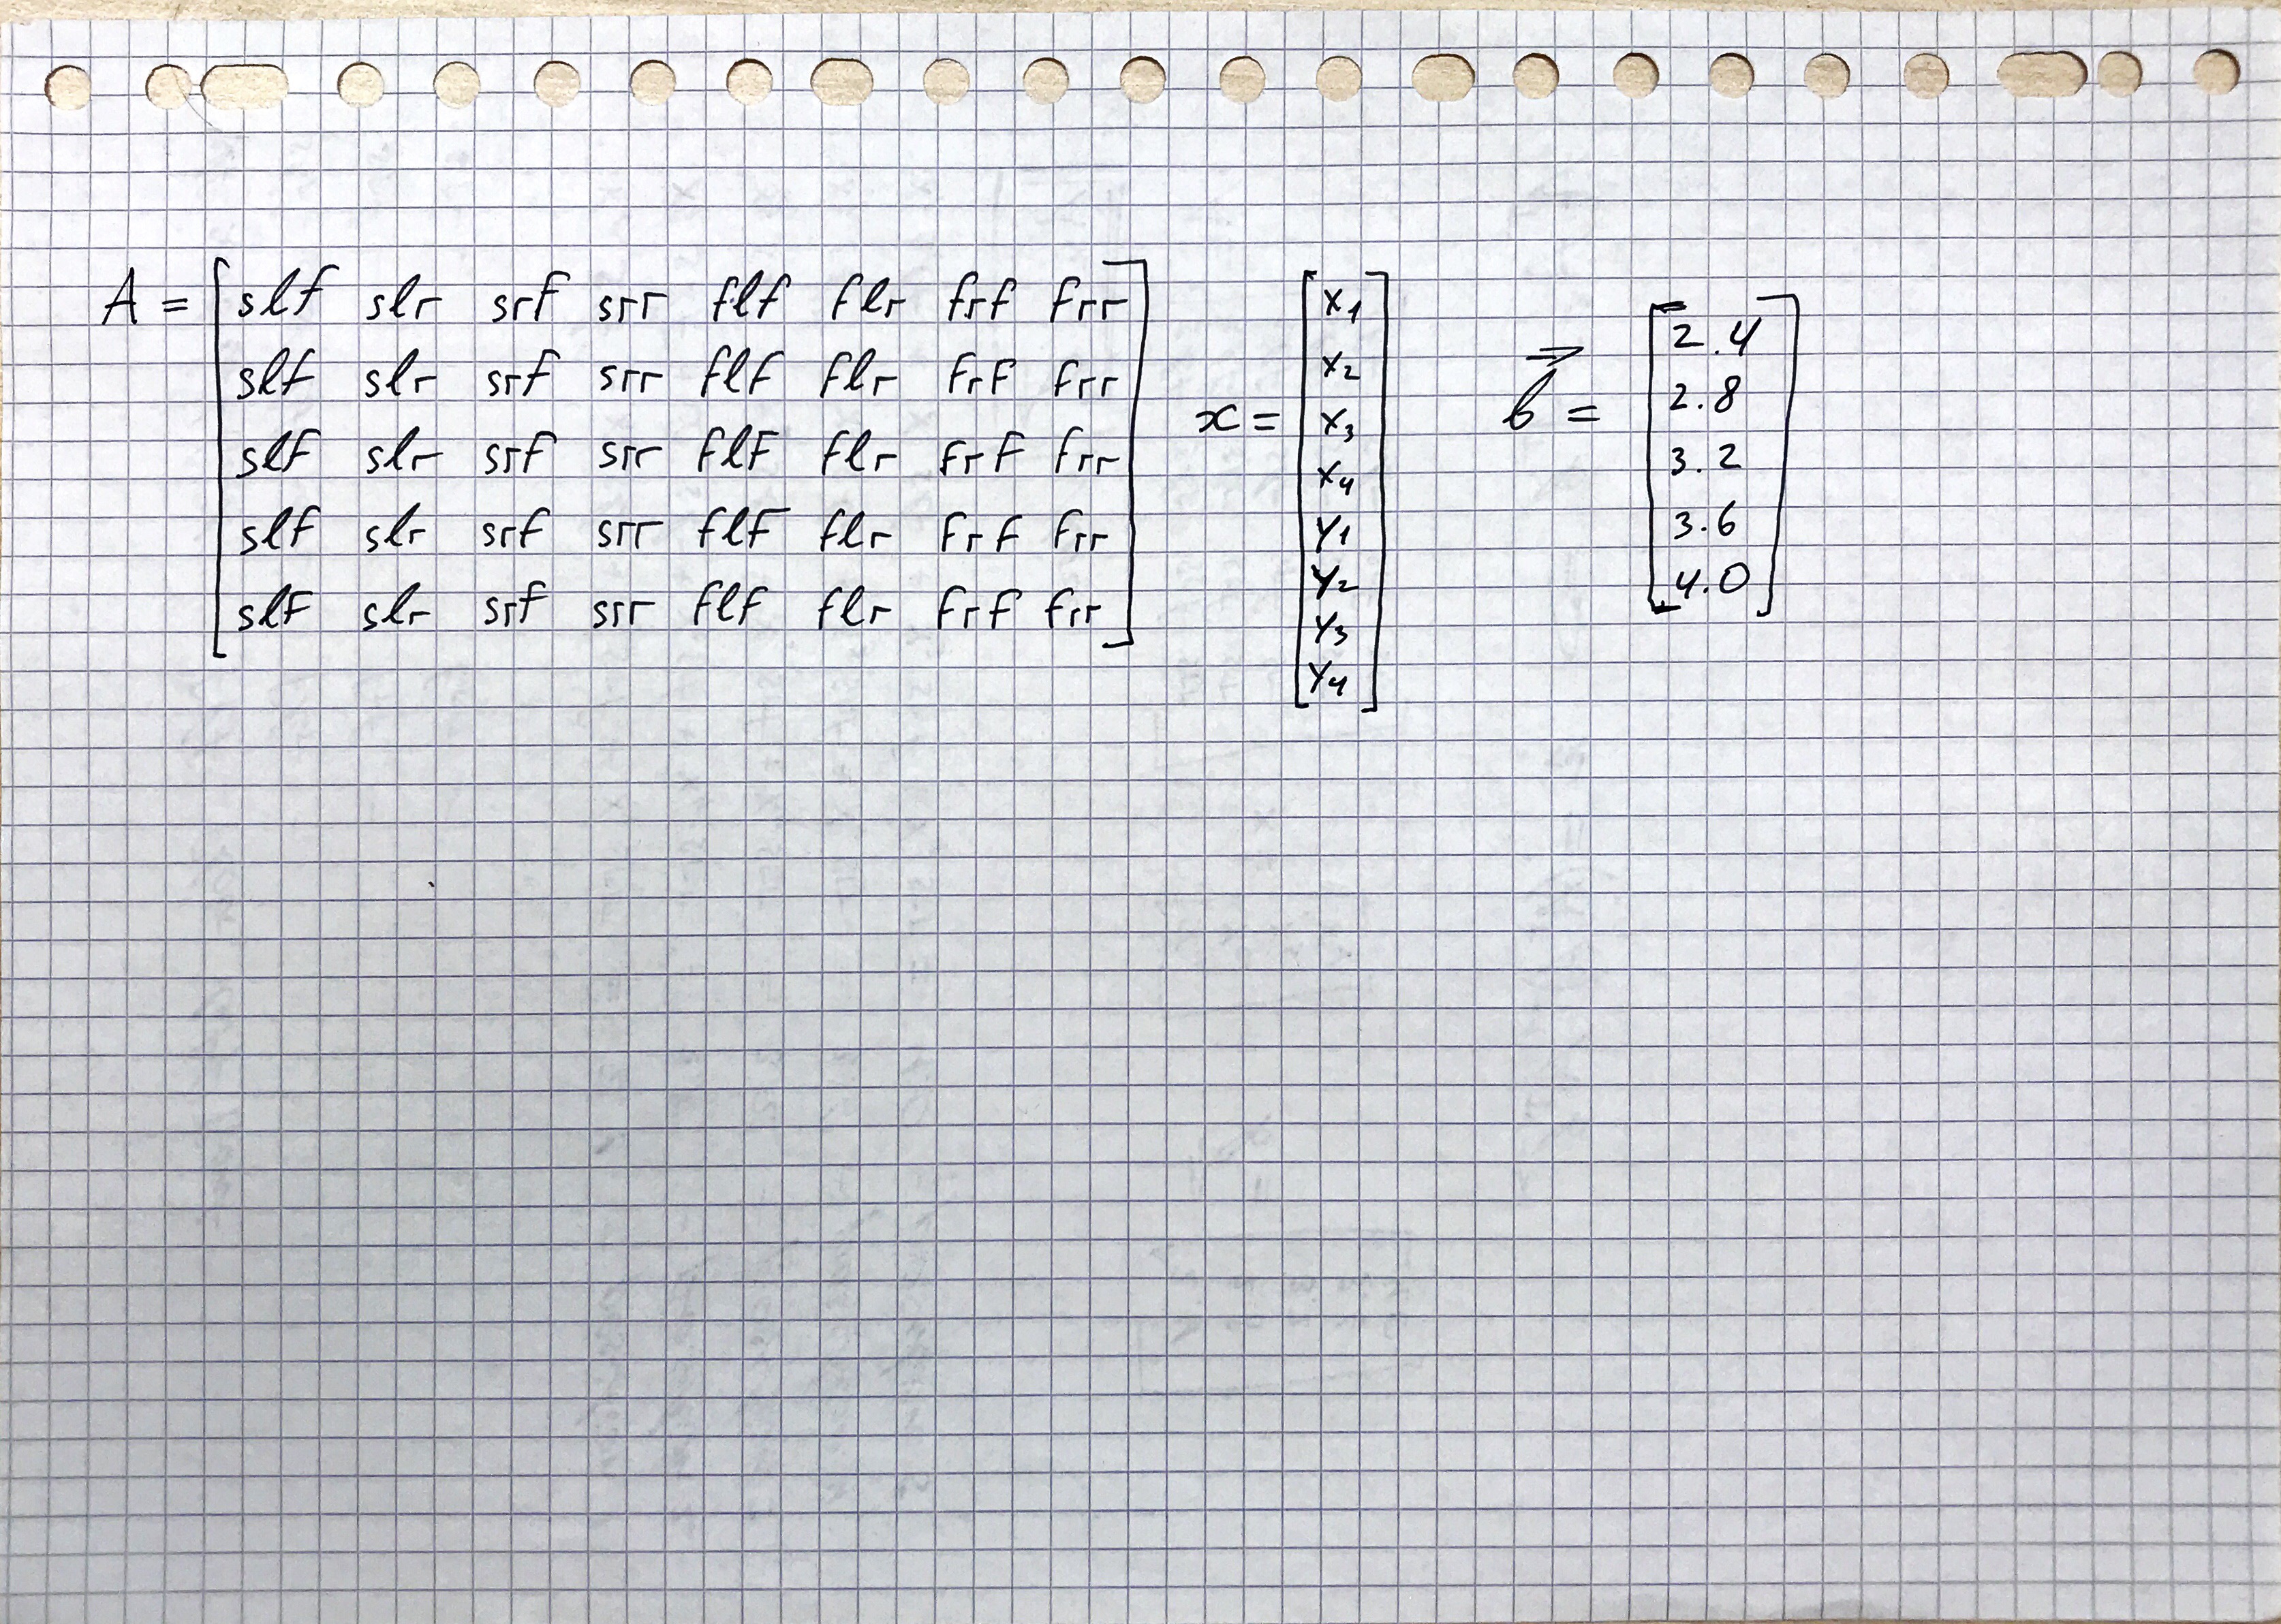 A = [ slf slr srf srr flf flr frf frr ]
slf slr srf srr flf flr frf frr
slf slr srf srr flf flr frf frr
slf slr srf srr flf flr frf frr
slf slr srf srr flf flr frf frr
x = [ x₁
x₂
x₃
x₄
y₁
y₂
y₃
y₄ ]
b⃗ = [ 2.4
2.8
3.2
3.6
4.0 ]